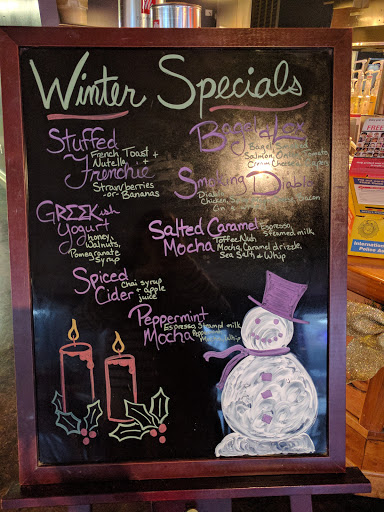 Winter Specials
Stuffed
Frenchie
French Toast +
Nutella, +
Strawberries
-or- Bananas
GREEKish
Yogurt
honey,
Walnuts,
Pomegranate
Syrup
Spiced
Cider
chai syrup
+ apple
juice
Bagel & Lox
Bagel
Salmon,
Tomato,
Cream Cheese
Smoking Diablo
Chicken,
Bacon
Salted Caramel
Mocha
Espresso,
Steamed milk
Toffee Nut,
Mocha, Caramel drizzle,
Sea Salt & Whip
Peppermint
Mocha
Espresso, Steamed milk
Whip
FREE
International